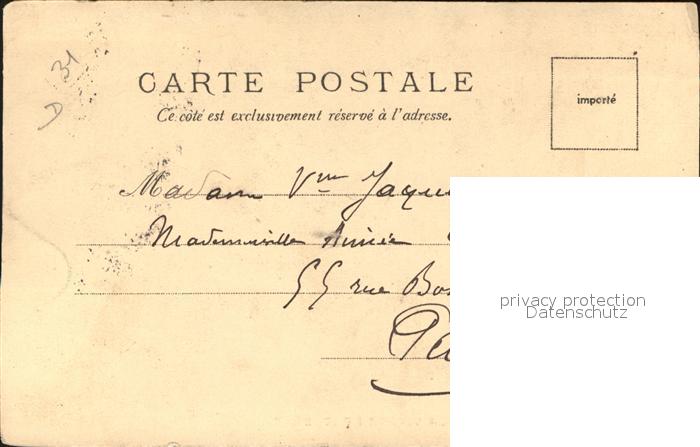 D 31
CARTE POSTALE
Ce côté est exclusivement réservé à l'adresse.
importé
Madame Vve Jaqu
Mademoiselle Aimée
55 rue Bos
privacy protection
Datenschutz